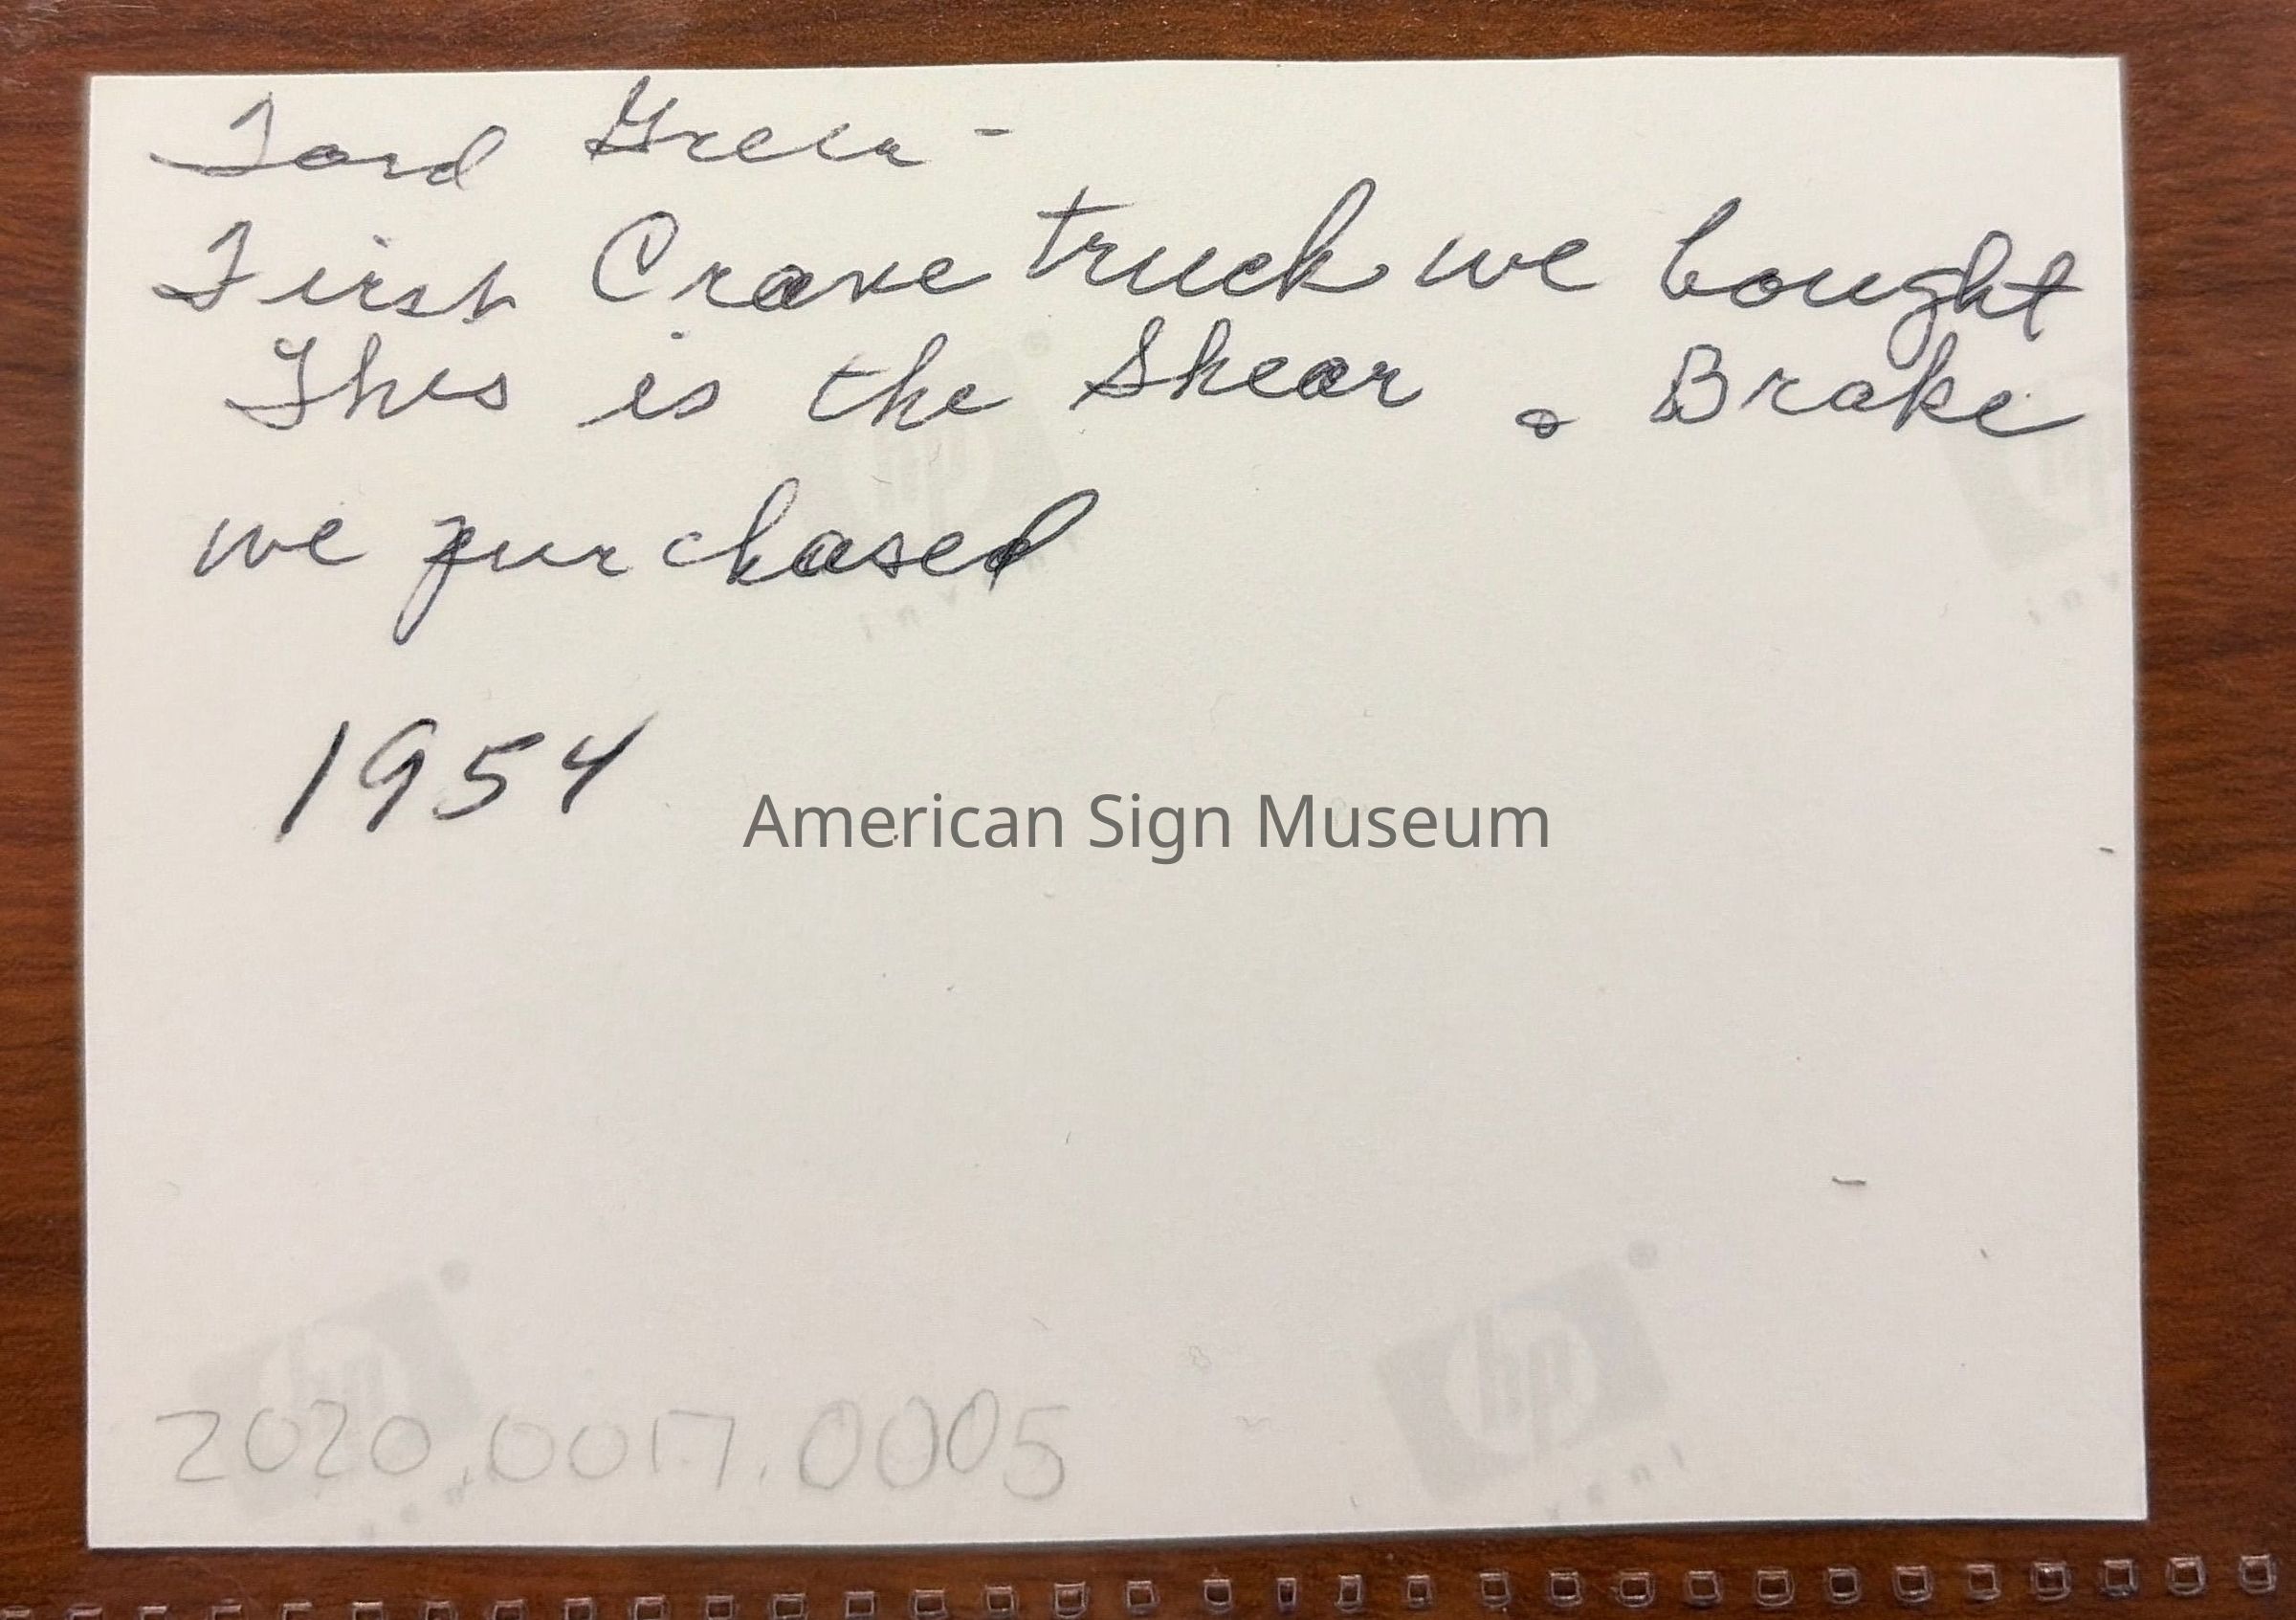 Ford Green -
First Crane truck we bought
This is the Shear & Brake
we purchased
1954
American Sign Museum
2020.0017.0005
hp
hp
hp
hp